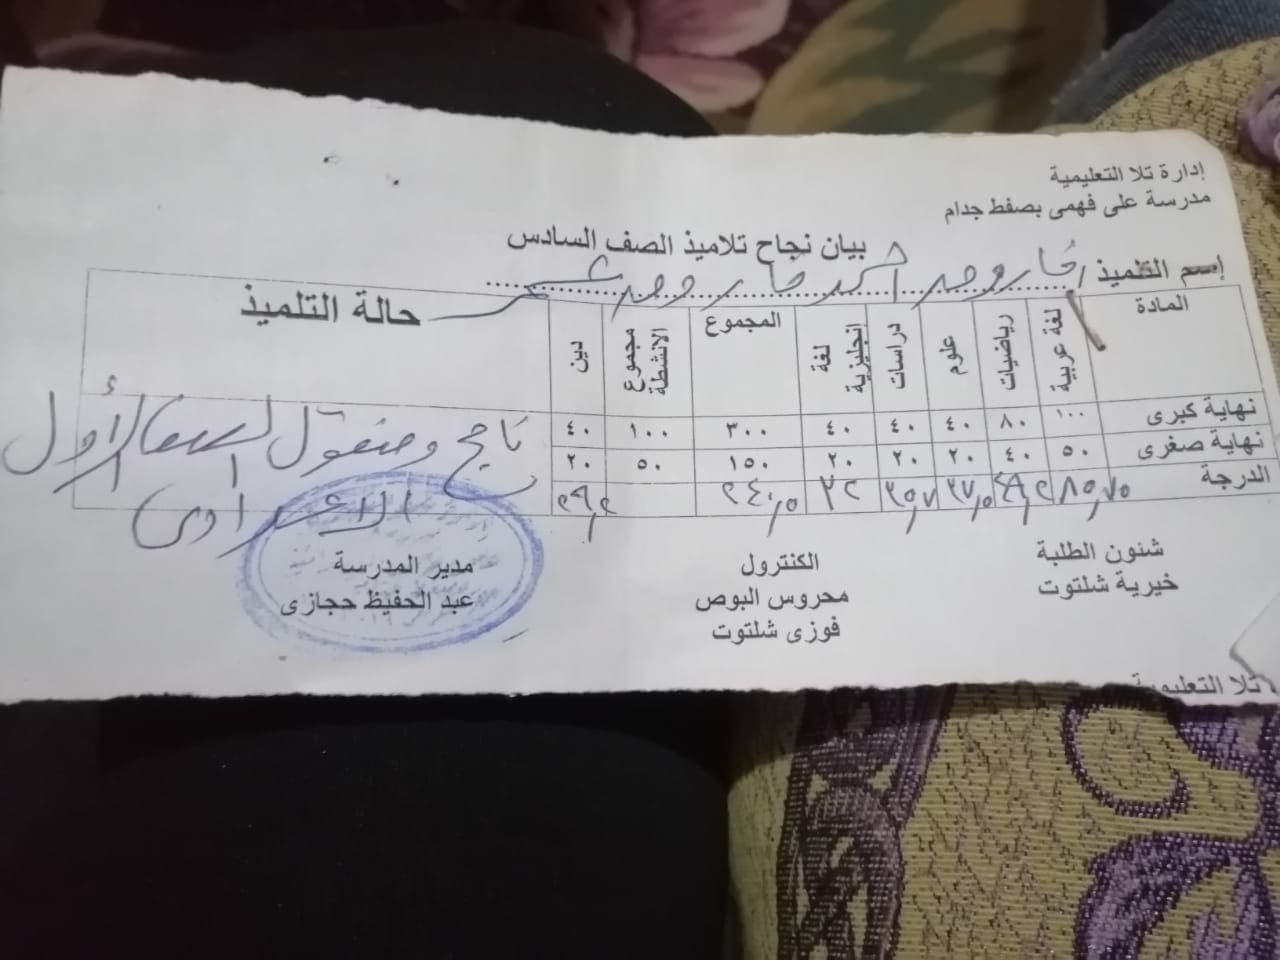 إدارة تلا التعليمية
مدرسة على فهمى بصفط جدام
بيان نجاح تلاميذ الصف السادس
إسم التلميذ
المادة لغة عربية رياضيات علوم دراسات لغة إنجليزية المجموع مجموع الانشطة دين حالة التلميذ
نهاية كبرى ١٠٠ ٨٠ ٤٠ ٤٠ ٤٠ ٣٠٠ ١٠٠ ٤٠ ناجح ومنقول للصف الأول
نهاية صغرى ٥٠ ٤٠ ٢٠ ٢٠ ٢٠ ١٥٠ ٥٠ ٢٠ الاعدادى
الدرجة ٣٢
شئون الطلبة الكنترول مدير المدرسة
خيرية شلتوت محروس البوص عبد الحفيظ حجازى
فوزى شلتوت
تلا التعليمية